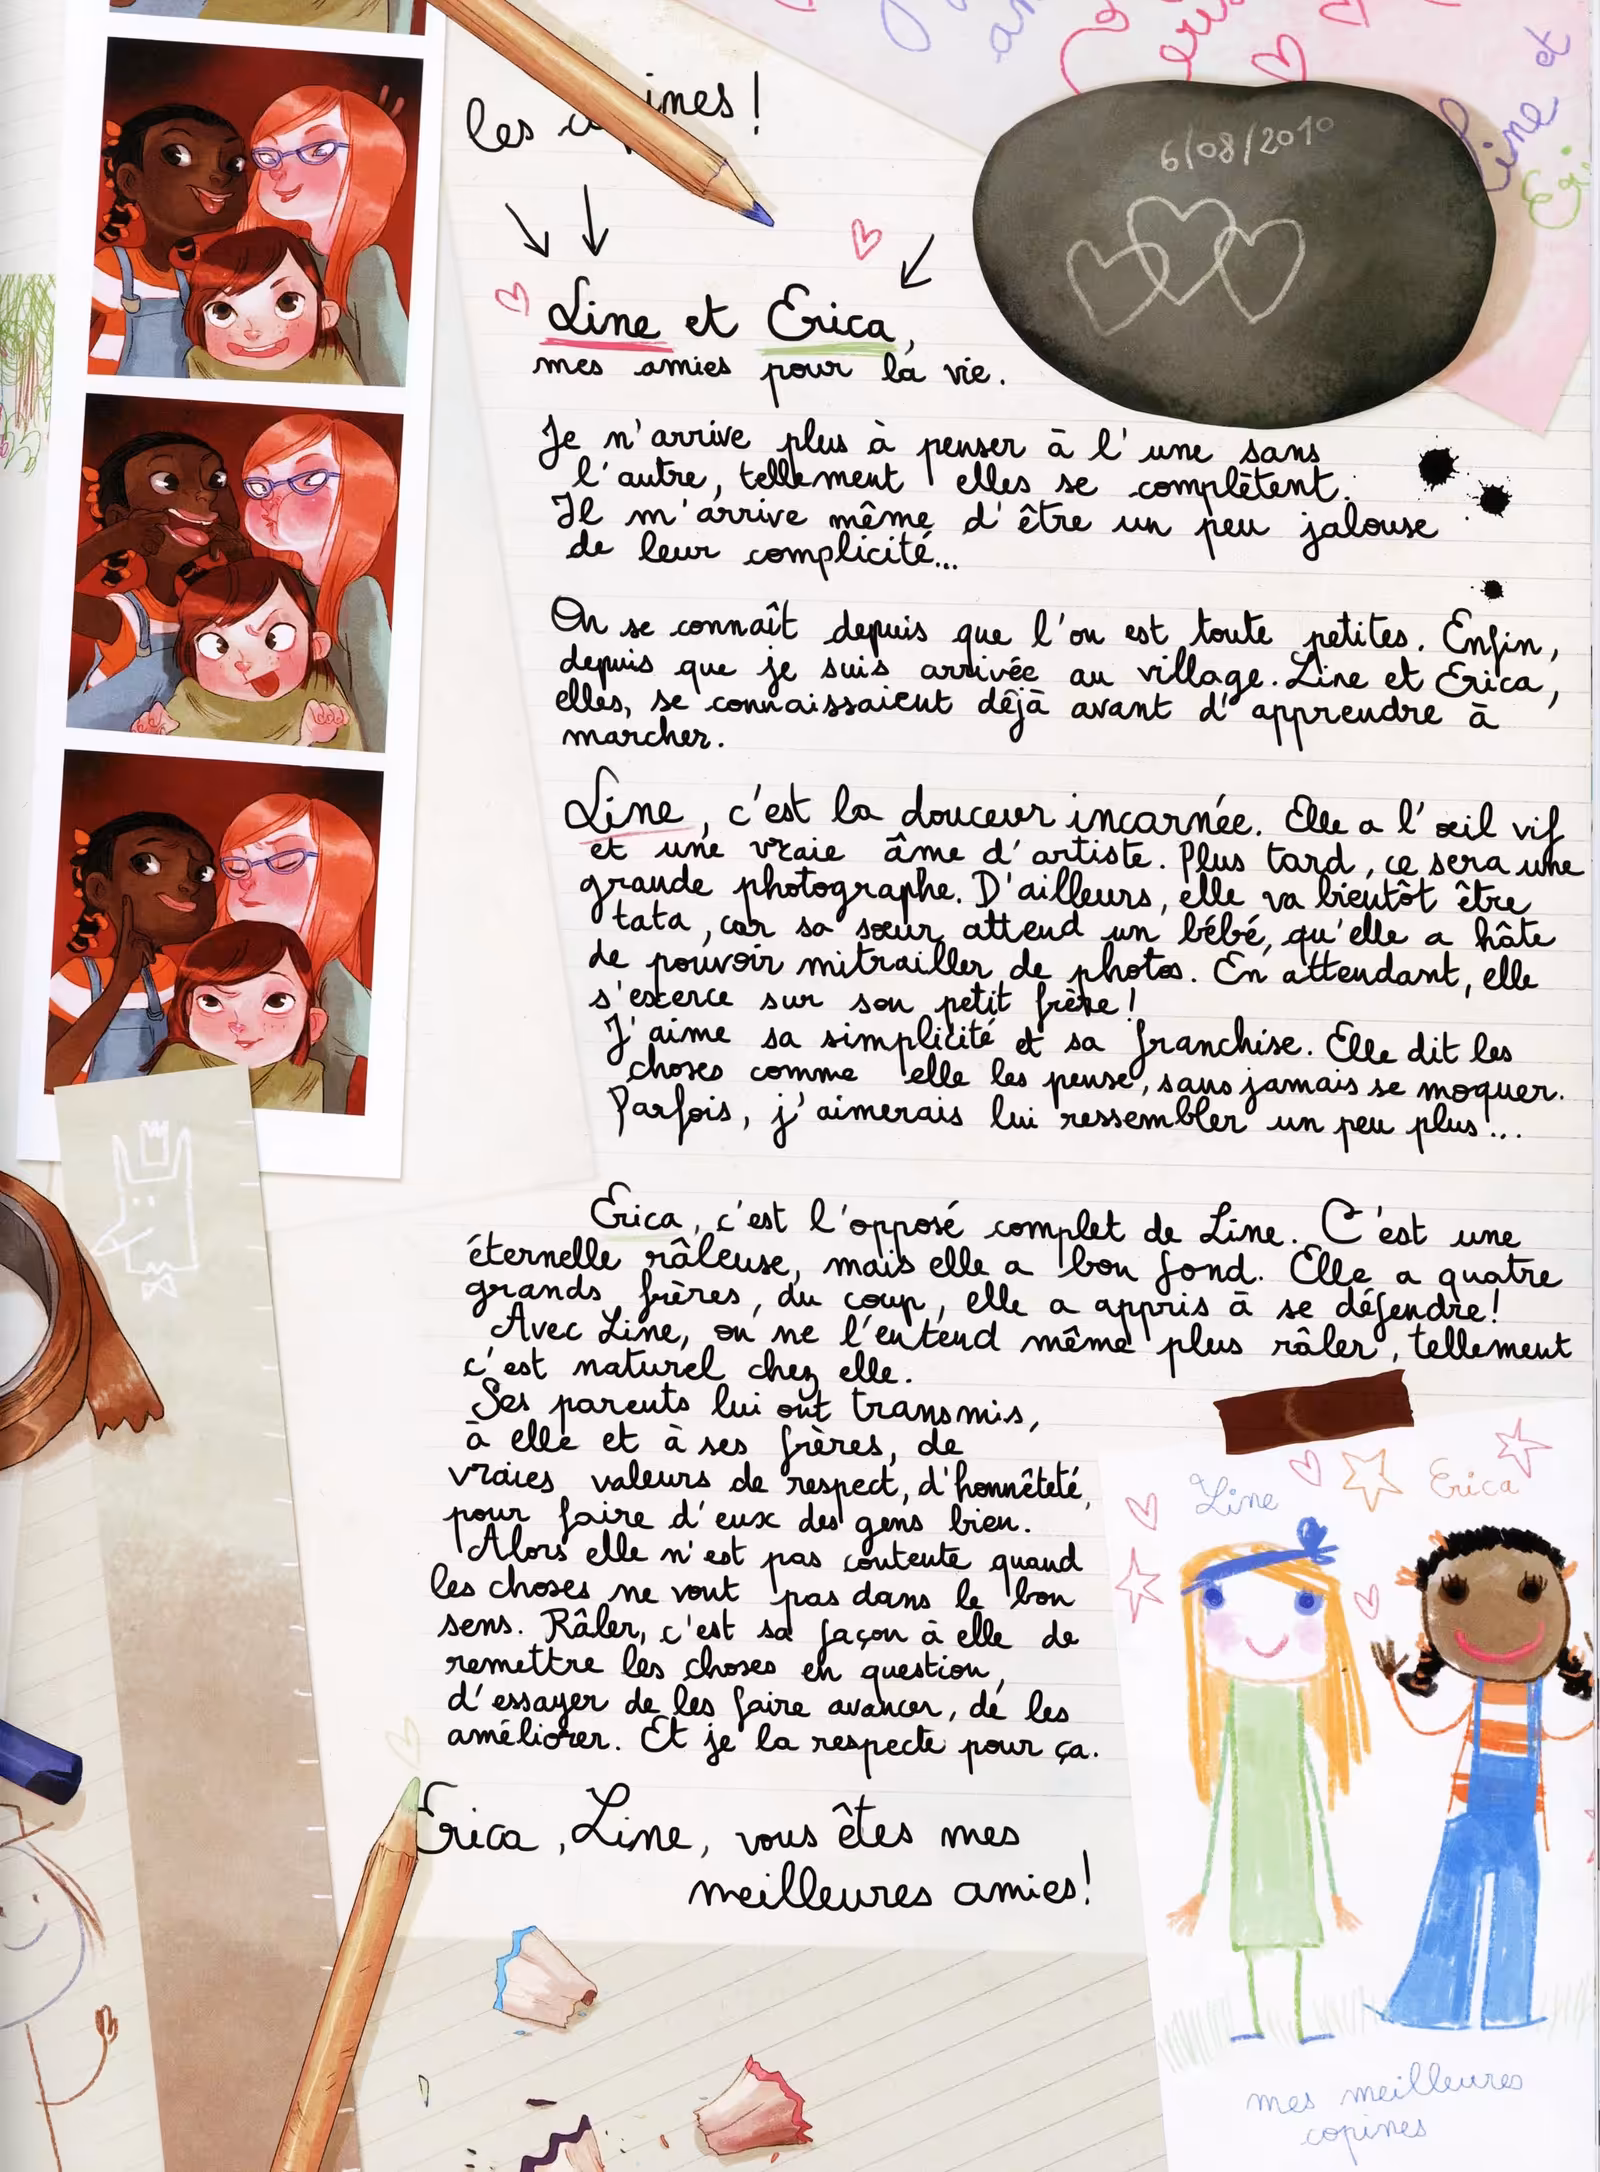 les copines !
6/08/2010
Line et
Line et Erica,
mes amies pour la vie.
Je n'arrive plus à penser à l'une sans
l'autre, tellement elles se complètent.
Il m'arrive même d'être un peu jalouse
de leur complicité...
On se connaît depuis que l'on est toute petites. Enfin,
depuis que je suis arrivée au village. Line et Erica,
elles, se connaissaient déjà avant d'apprendre à
marcher.
Line, c'est la douceur incarnée. Elle a l'œil vif
et une vraie âme d'artiste. Plus tard, ce sera une
grande photographe. D'ailleurs, elle va bientôt être
tata, car sa sœur attend un bébé, qu'elle a hâte
de pouvoir mitrailler de photos. En attendant, elle
s'exerce sur son petit frère !
J'aime sa simplicité et sa franchise. Elle dit les
choses comme elle les pense, sans jamais se moquer.
Parfois, j'aimerais lui ressembler un peu plus...
Erica, c'est l'opposé complet de Line. C'est une
éternelle râleuse, mais elle a bon fond. Elle a quatre
grands frères, du coup, elle a appris à se défendre !
Avec Line, on ne l'entend même plus râler, tellement
c'est naturel chez elle.
Ses parents lui ont transmis,
à elle et à ses frères, de
vraies valeurs de respect, d'honnêteté,
pour faire d'eux des gens bien.
Alors elle n'est pas contente quand
les choses ne vont pas dans le bon
sens. Râler, c'est sa façon à elle de
remettre les choses en question,
d'essayer de les faire avancer, de les
améliorer. Et je la respecte pour ça.
Erica, Line, vous êtes mes
meilleures amies !
Line Erica
mes meilleures
copines